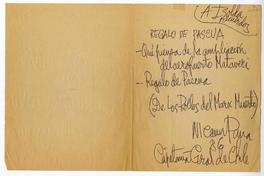 A Isolda
recuerdos
REGALO DE PASCUA
- Qué piensa de la ampliación
del aeropuerto Mataveri
- Regalo de Pascua
(De Los Pollos del Marx Muerto)
Nicanor Parra
86
Capitanía Gral de Chile